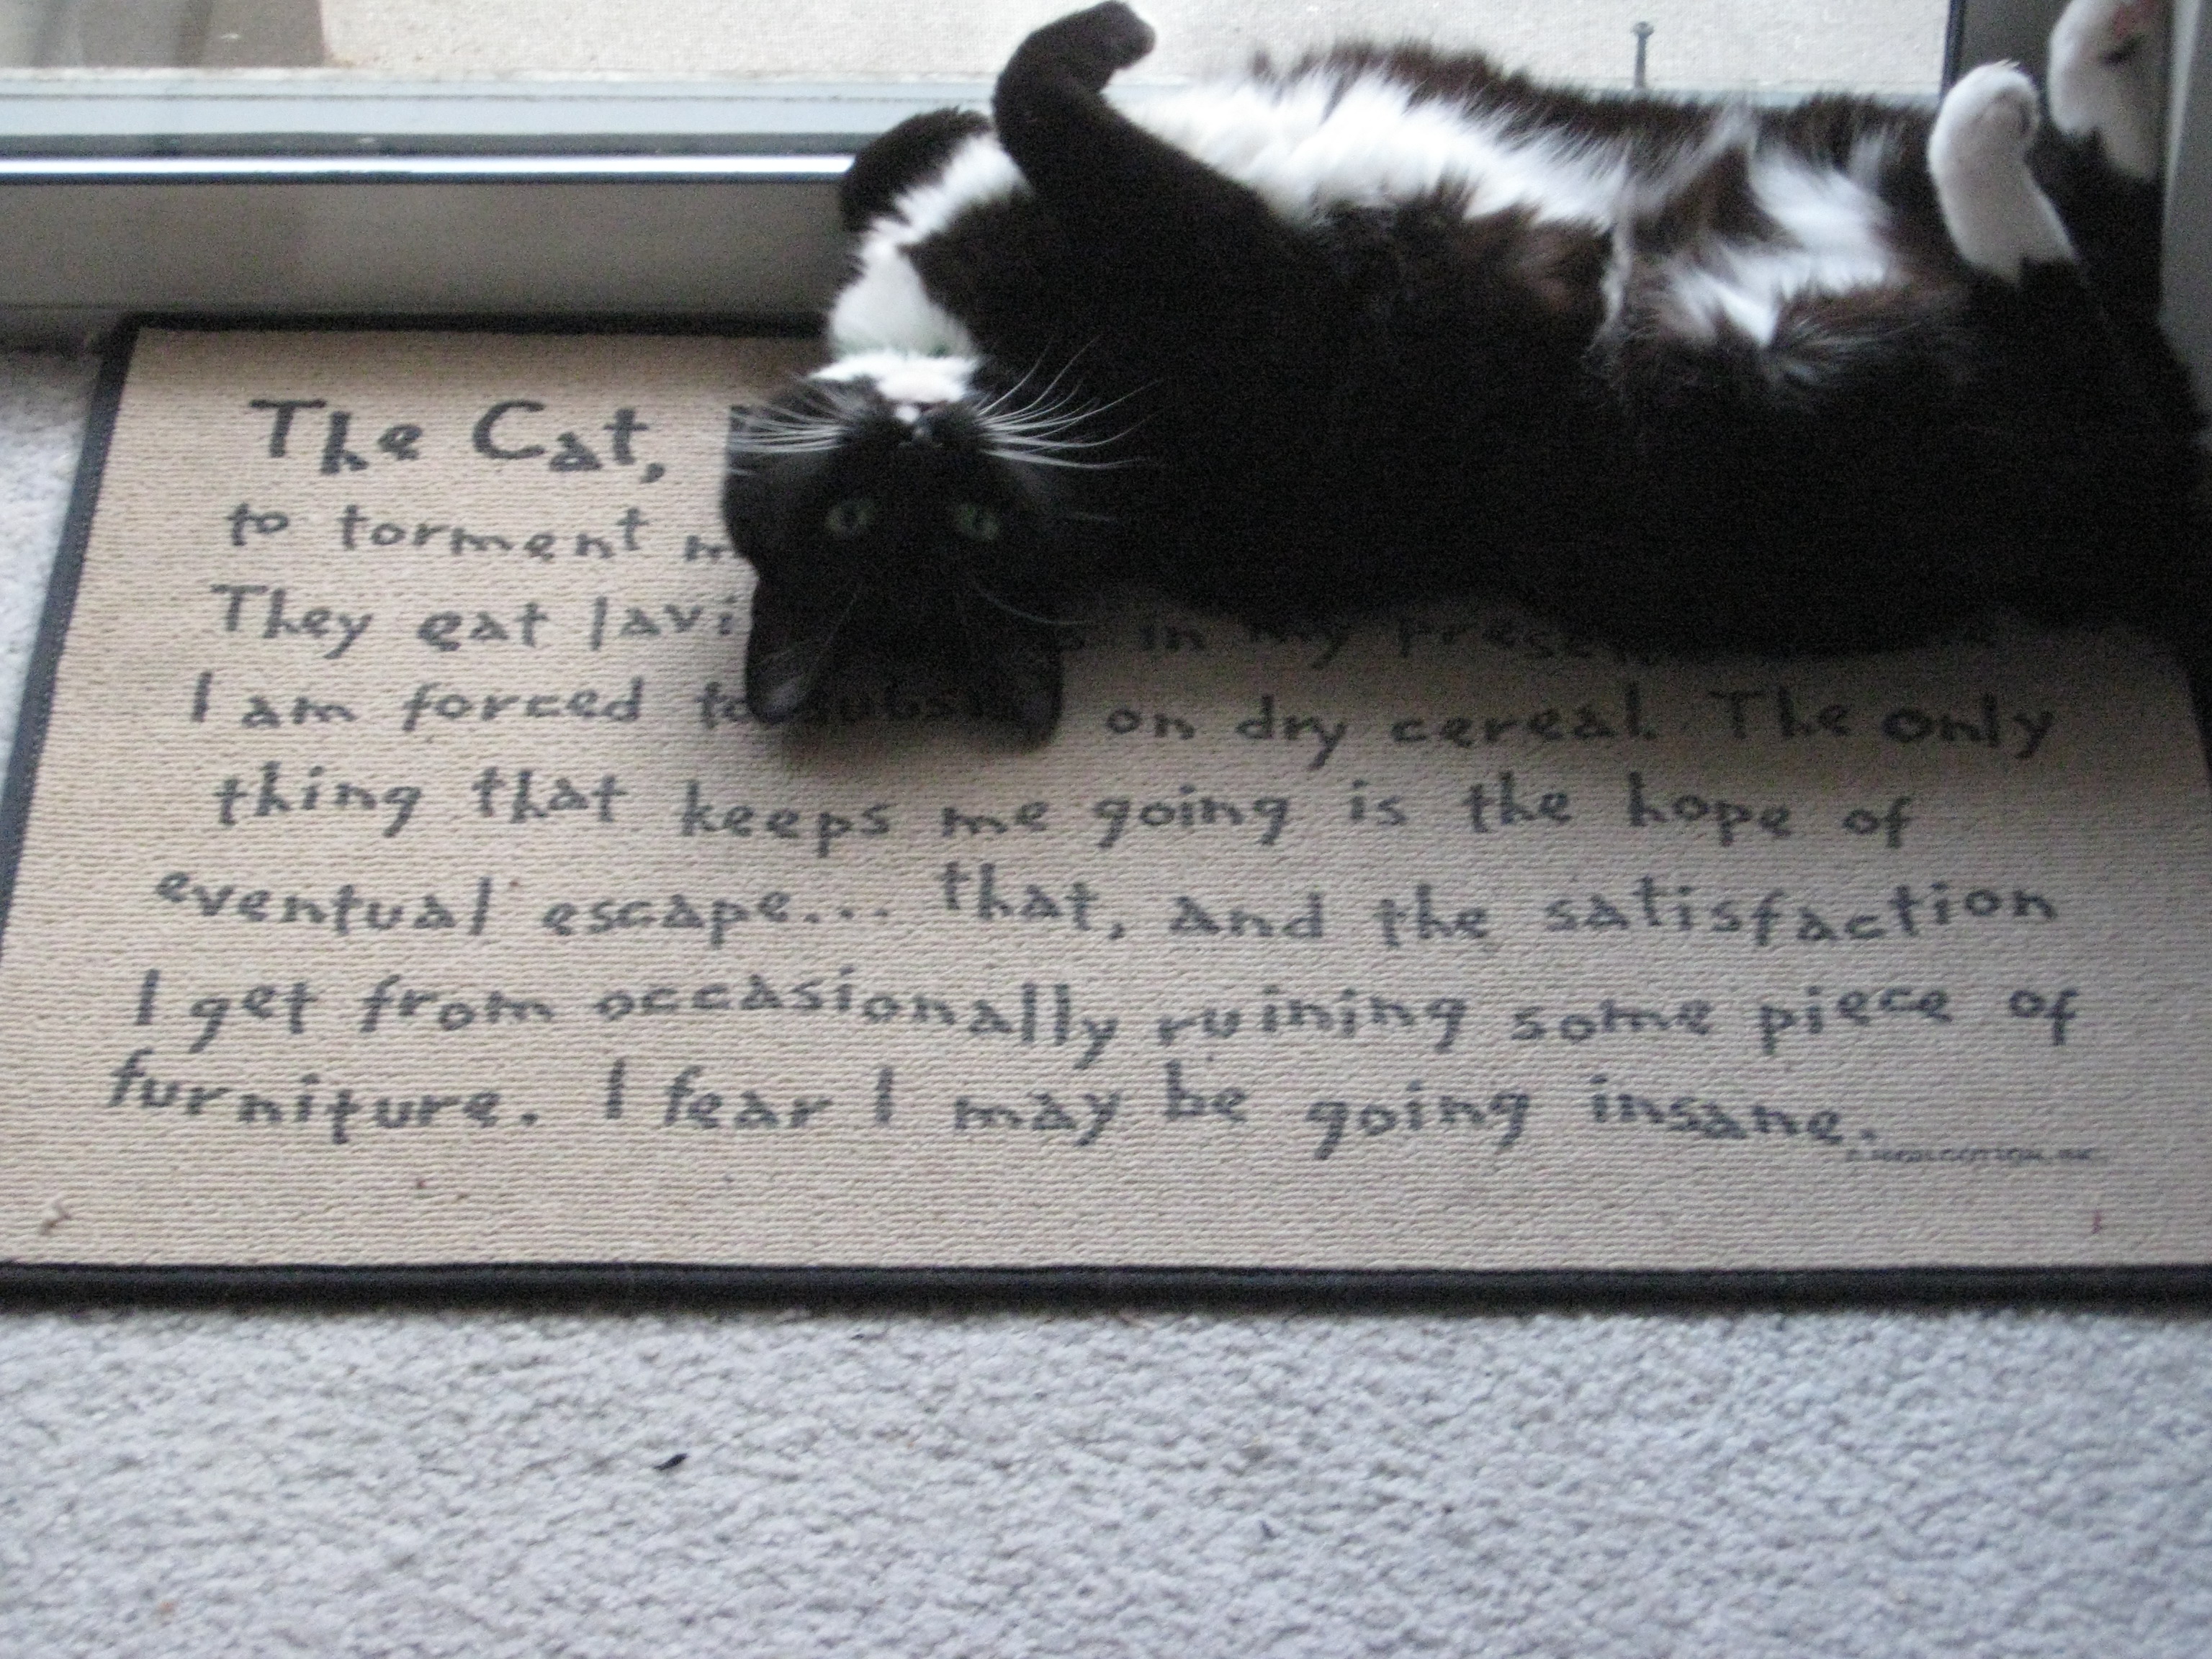 The Cat,
to torment
They eat lavi
I am forced to subsist on dry cereal. The only
thing that keeps me going is the hope of
eventual escape... that, and the satisfaction
I get from occasionally ruining some piece of
furniture. I fear I may be going insane.